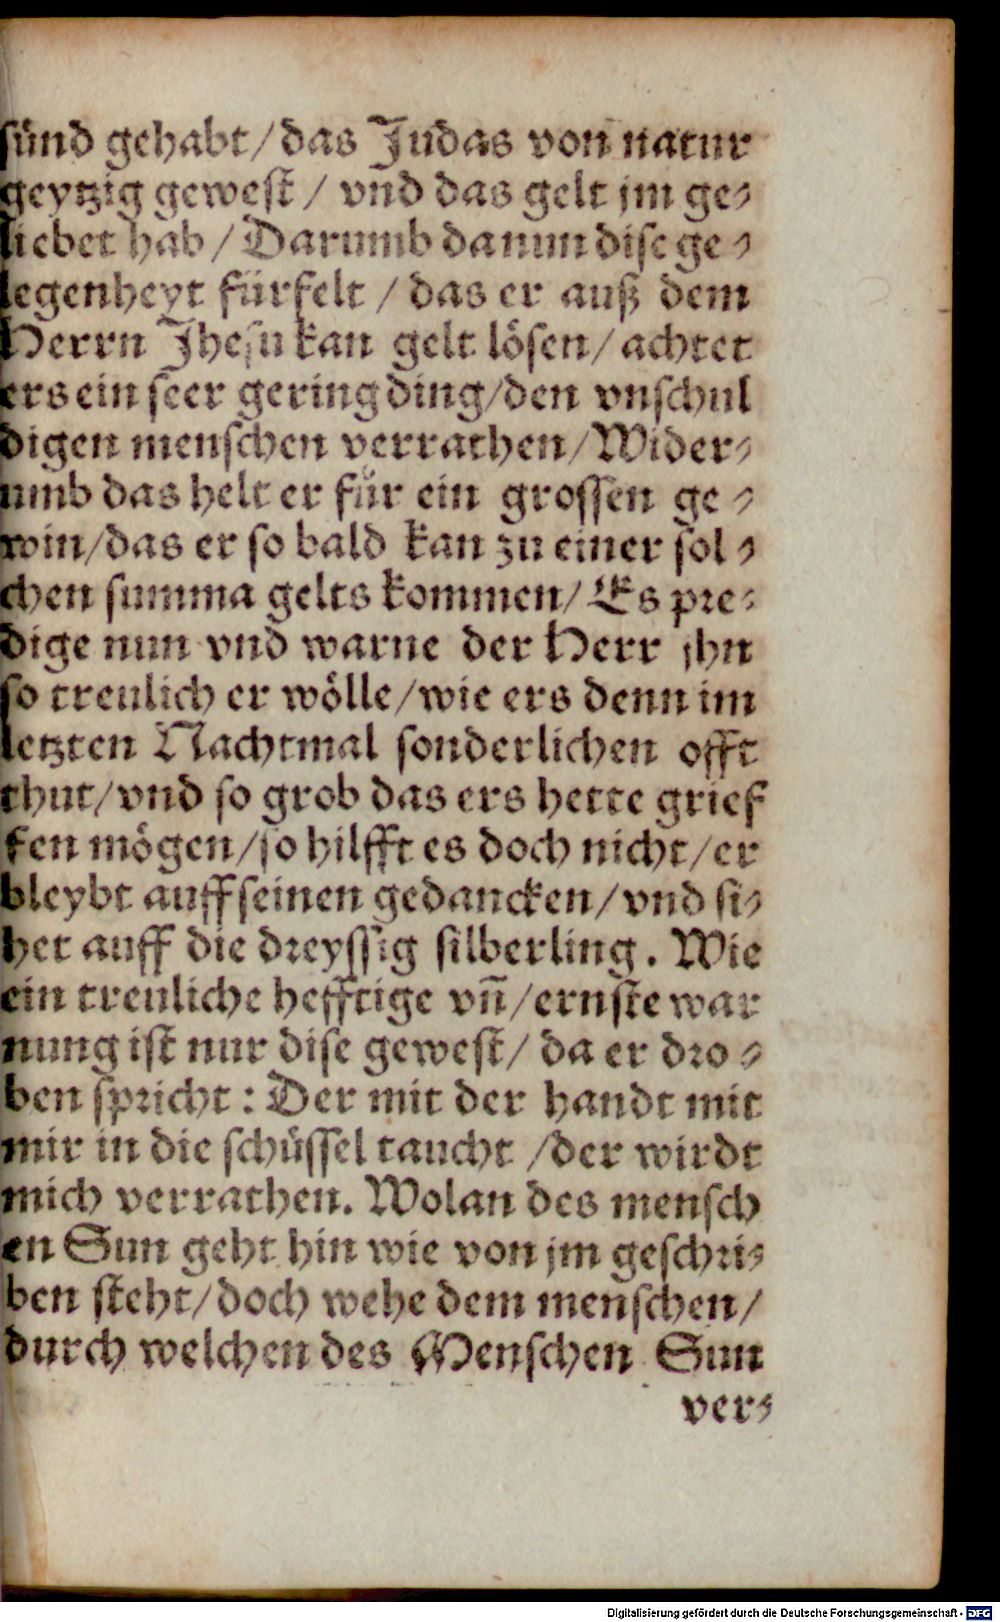 sünd gehabt / das Judas von natur
geytzig gewest / vnd das gelt jm ge-
liebet hab / Darumb da nun dise ge-
legenheyt fürfelt / das er auß dem
Herrn Jhesu kan gelt lösen / achtet
ers ein seer gering ding / den vnschul
digen menschen verrathen / Wider-
umb das helt er für ein grossen ge-
win / das er so bald kan zu einer sol-
chen summa gelts kommen / Es pre-
dige nun vnd warne der Herr jhn
so treulich er wölle / wie ers denn im
letzten Nachtmal sonderlichen offt
thut / vnd so grob das ers hette grief
fen mögen / so hilfft es doch nicht / er
bleybt auff seinen gedancken / vnd si-
het auff die dreyssig silberling. Wie
ein treuliche hefftige vn̄ / ernste war
nung ist nur dise gewest / da er dro-
ben spricht : Der mit der handt mit
mir in die schüssel taucht / der wirdt
mich verrathen. Wolan des mensch
en Sun geht hin wie von jm geschri-
ben steht / doch wehe dem menschen /
durch welchen des Menschen Sun
ver-
Digitalisierung gefördert durch die Deutsche Forschungsgemeinschaft - DFG